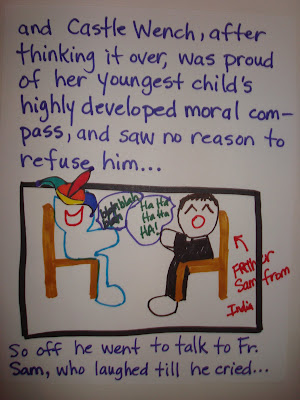 and Castle Wench, after
thinking it over, was proud
of her youngest child's
highly developed moral com-
pass, and saw no reason to
refuse him...
blah blah
blah
Ha Ha
Ha Ha
HA!
Father
Sam from
India
So off he went to talk to Fr.
Sam, who laughed till he cried...